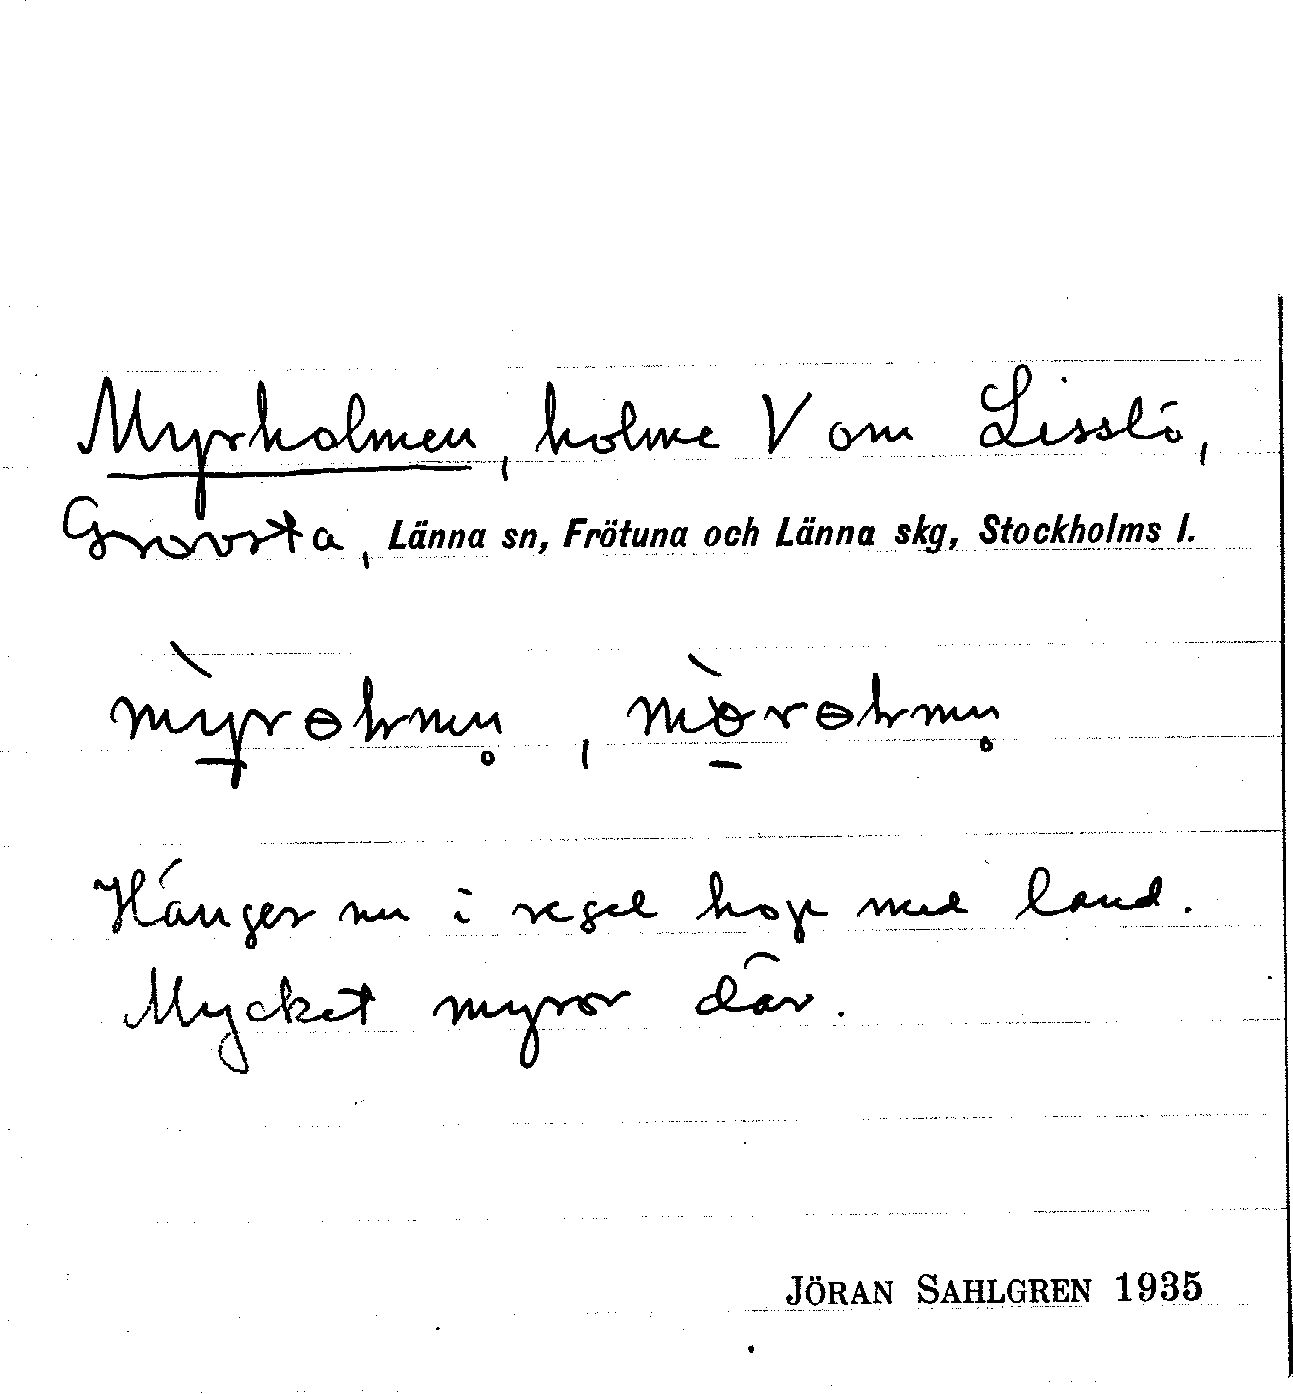 Myrholmen, holme V om Lisslö,
Grovsta, Länna sn, Frötuna och Länna skg, Stockholms l.
mỳ̱rɵhmn̥, mɵ̱̀rɵhmn̥
Hänger nu i regel hop med land.
Mycket myror där.
JÖRAN SAHLGREN 1935